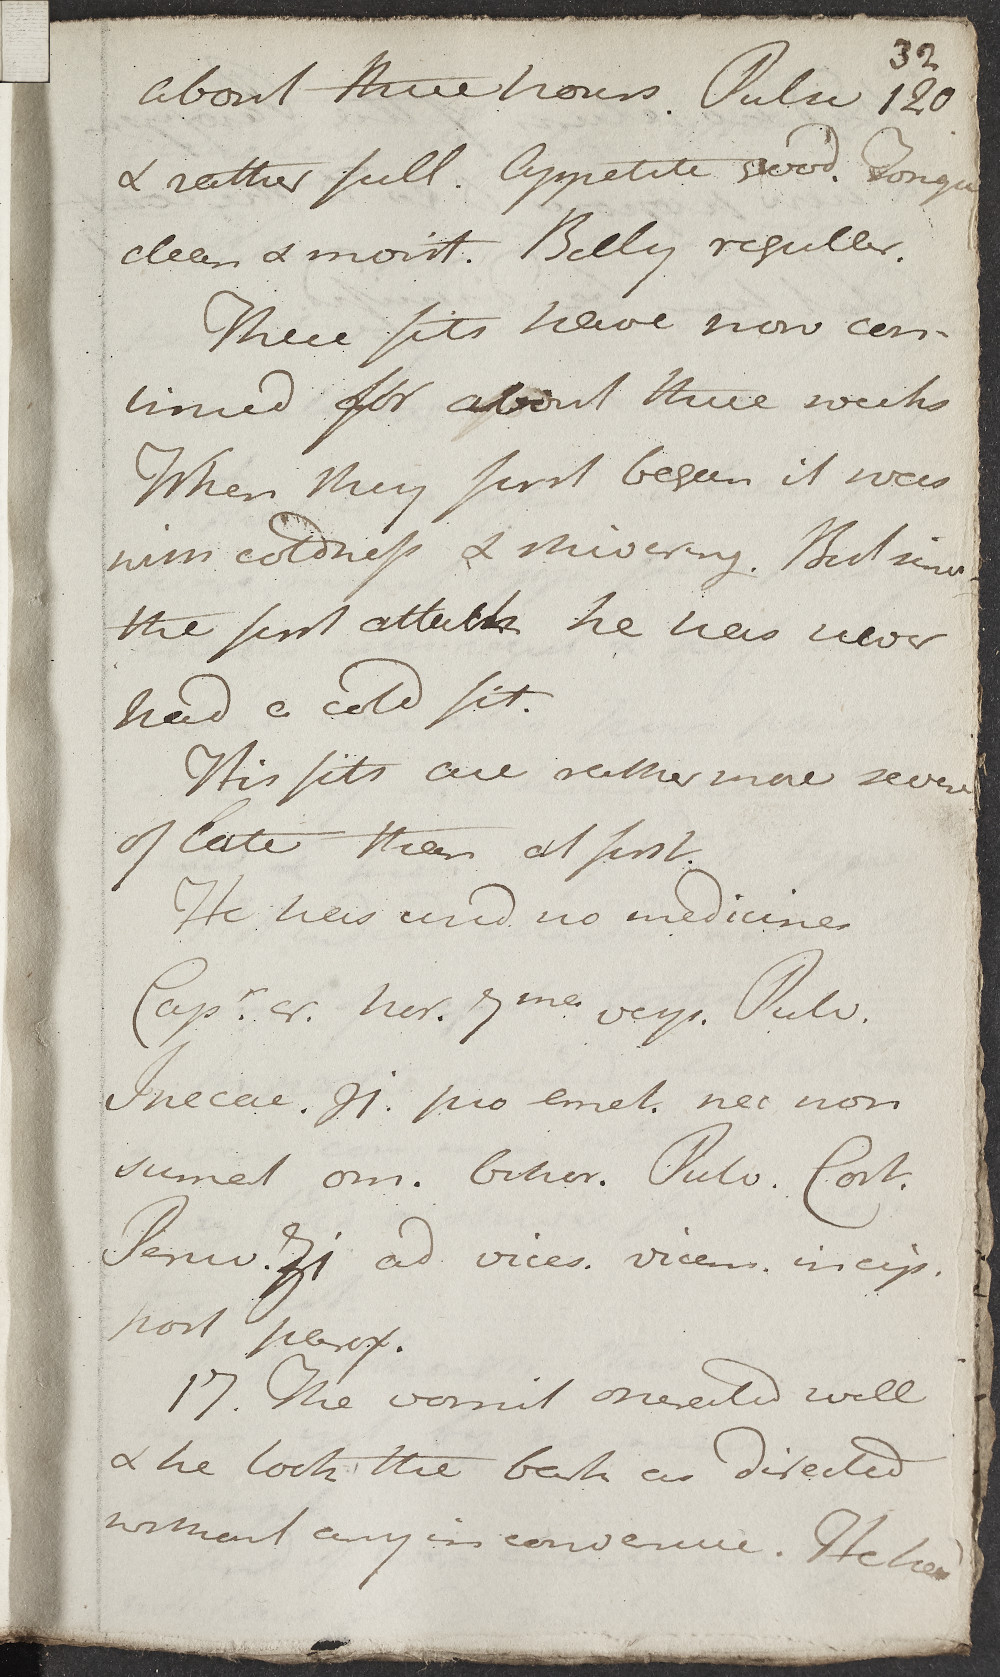 32
about three hours. Pulse 120
& rather full. Appetite good. Tongue
clean & moist. Belly regular.
These fits have now con-
tinued for about three weeks
When they first began it was
with coldness & shivering. But since
the first attack he has never
had a cold fit.
His fits are rather more severe
of late than at first.
He has used no medicines
Capr. cr. hor. 7ma vesp. Pulv.
Ipecac. ʒj. pro emet. nec non
sumat om. bihor. Pulv. Cort.
Peruv. ʒj ad vices. vicem. incip.
post parox.
17. The vomit operated well
& he took the bark as directed
without any inconvenience. He had